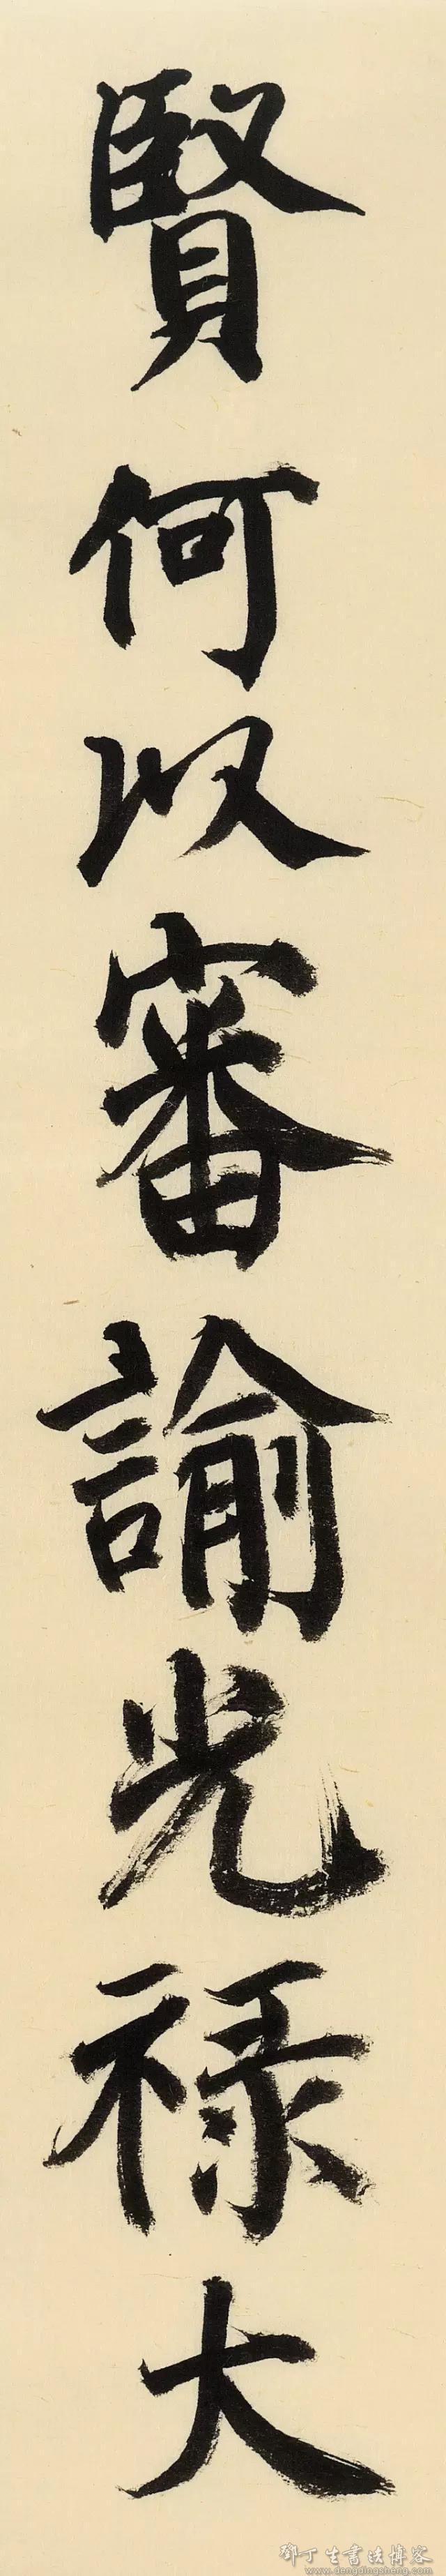 賢何以審諭光禄大
鄧丁生書法博客
www.dengdingsheng.com